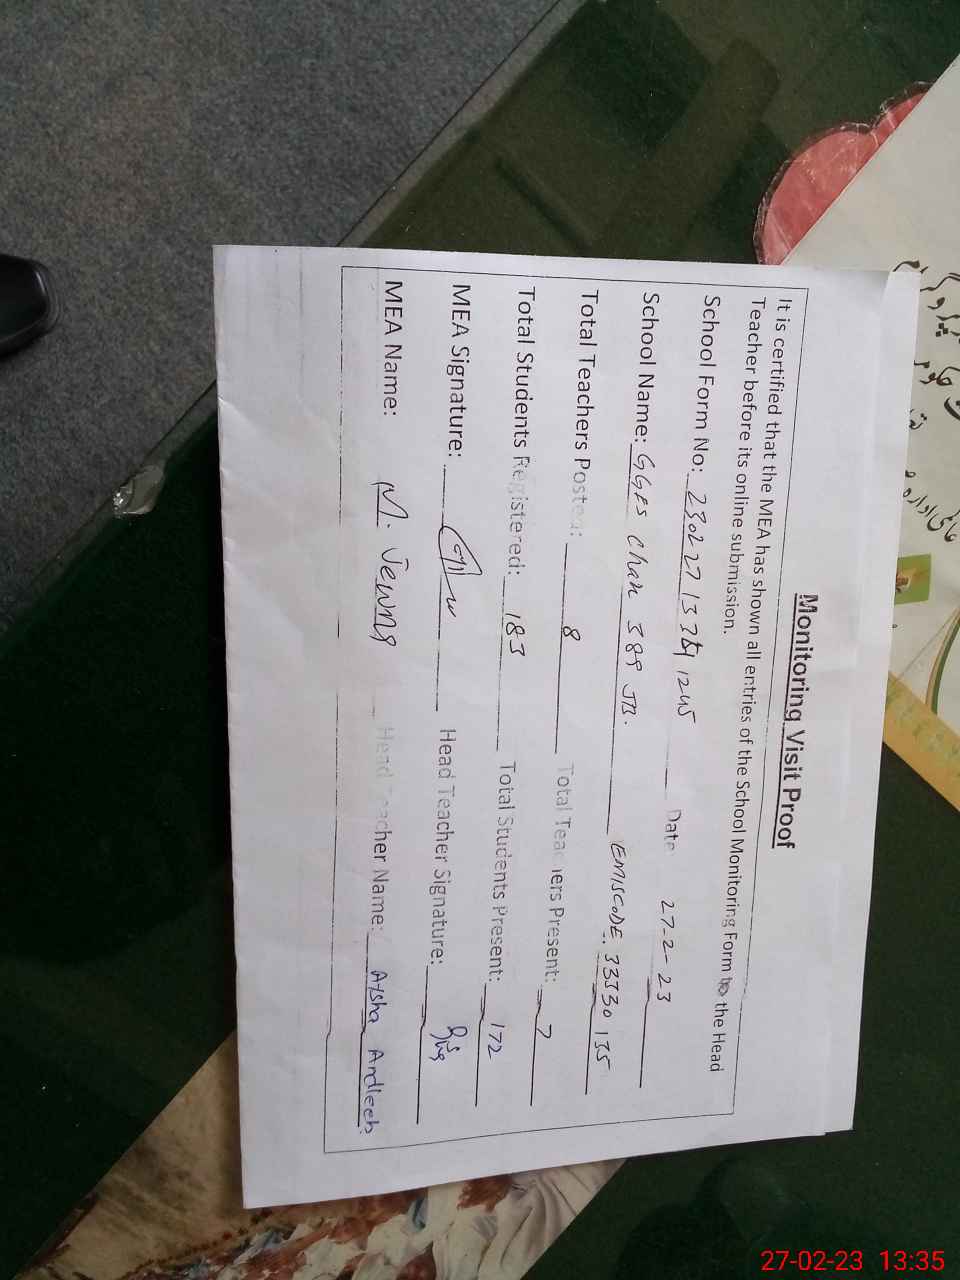 Monitoring Visit Proof
It is certified that the MEA has shown all entries of the School Monitoring Form to the Head
Teacher before its online submission.
School Form No: Date: 27-2-23
School Name: GGES Chak 389 JB. EMISCODE. 33330135
Total Teachers Posted: 8 Total Teachers Present: 7
Total Students Registered: 183 Total Students Present: 172
MEA Signature: Head Teacher Signature:
MEA Name: M. Head Teacher Name: Aysha Andleeb
عالمی ادارہ
27-02-23 13:35